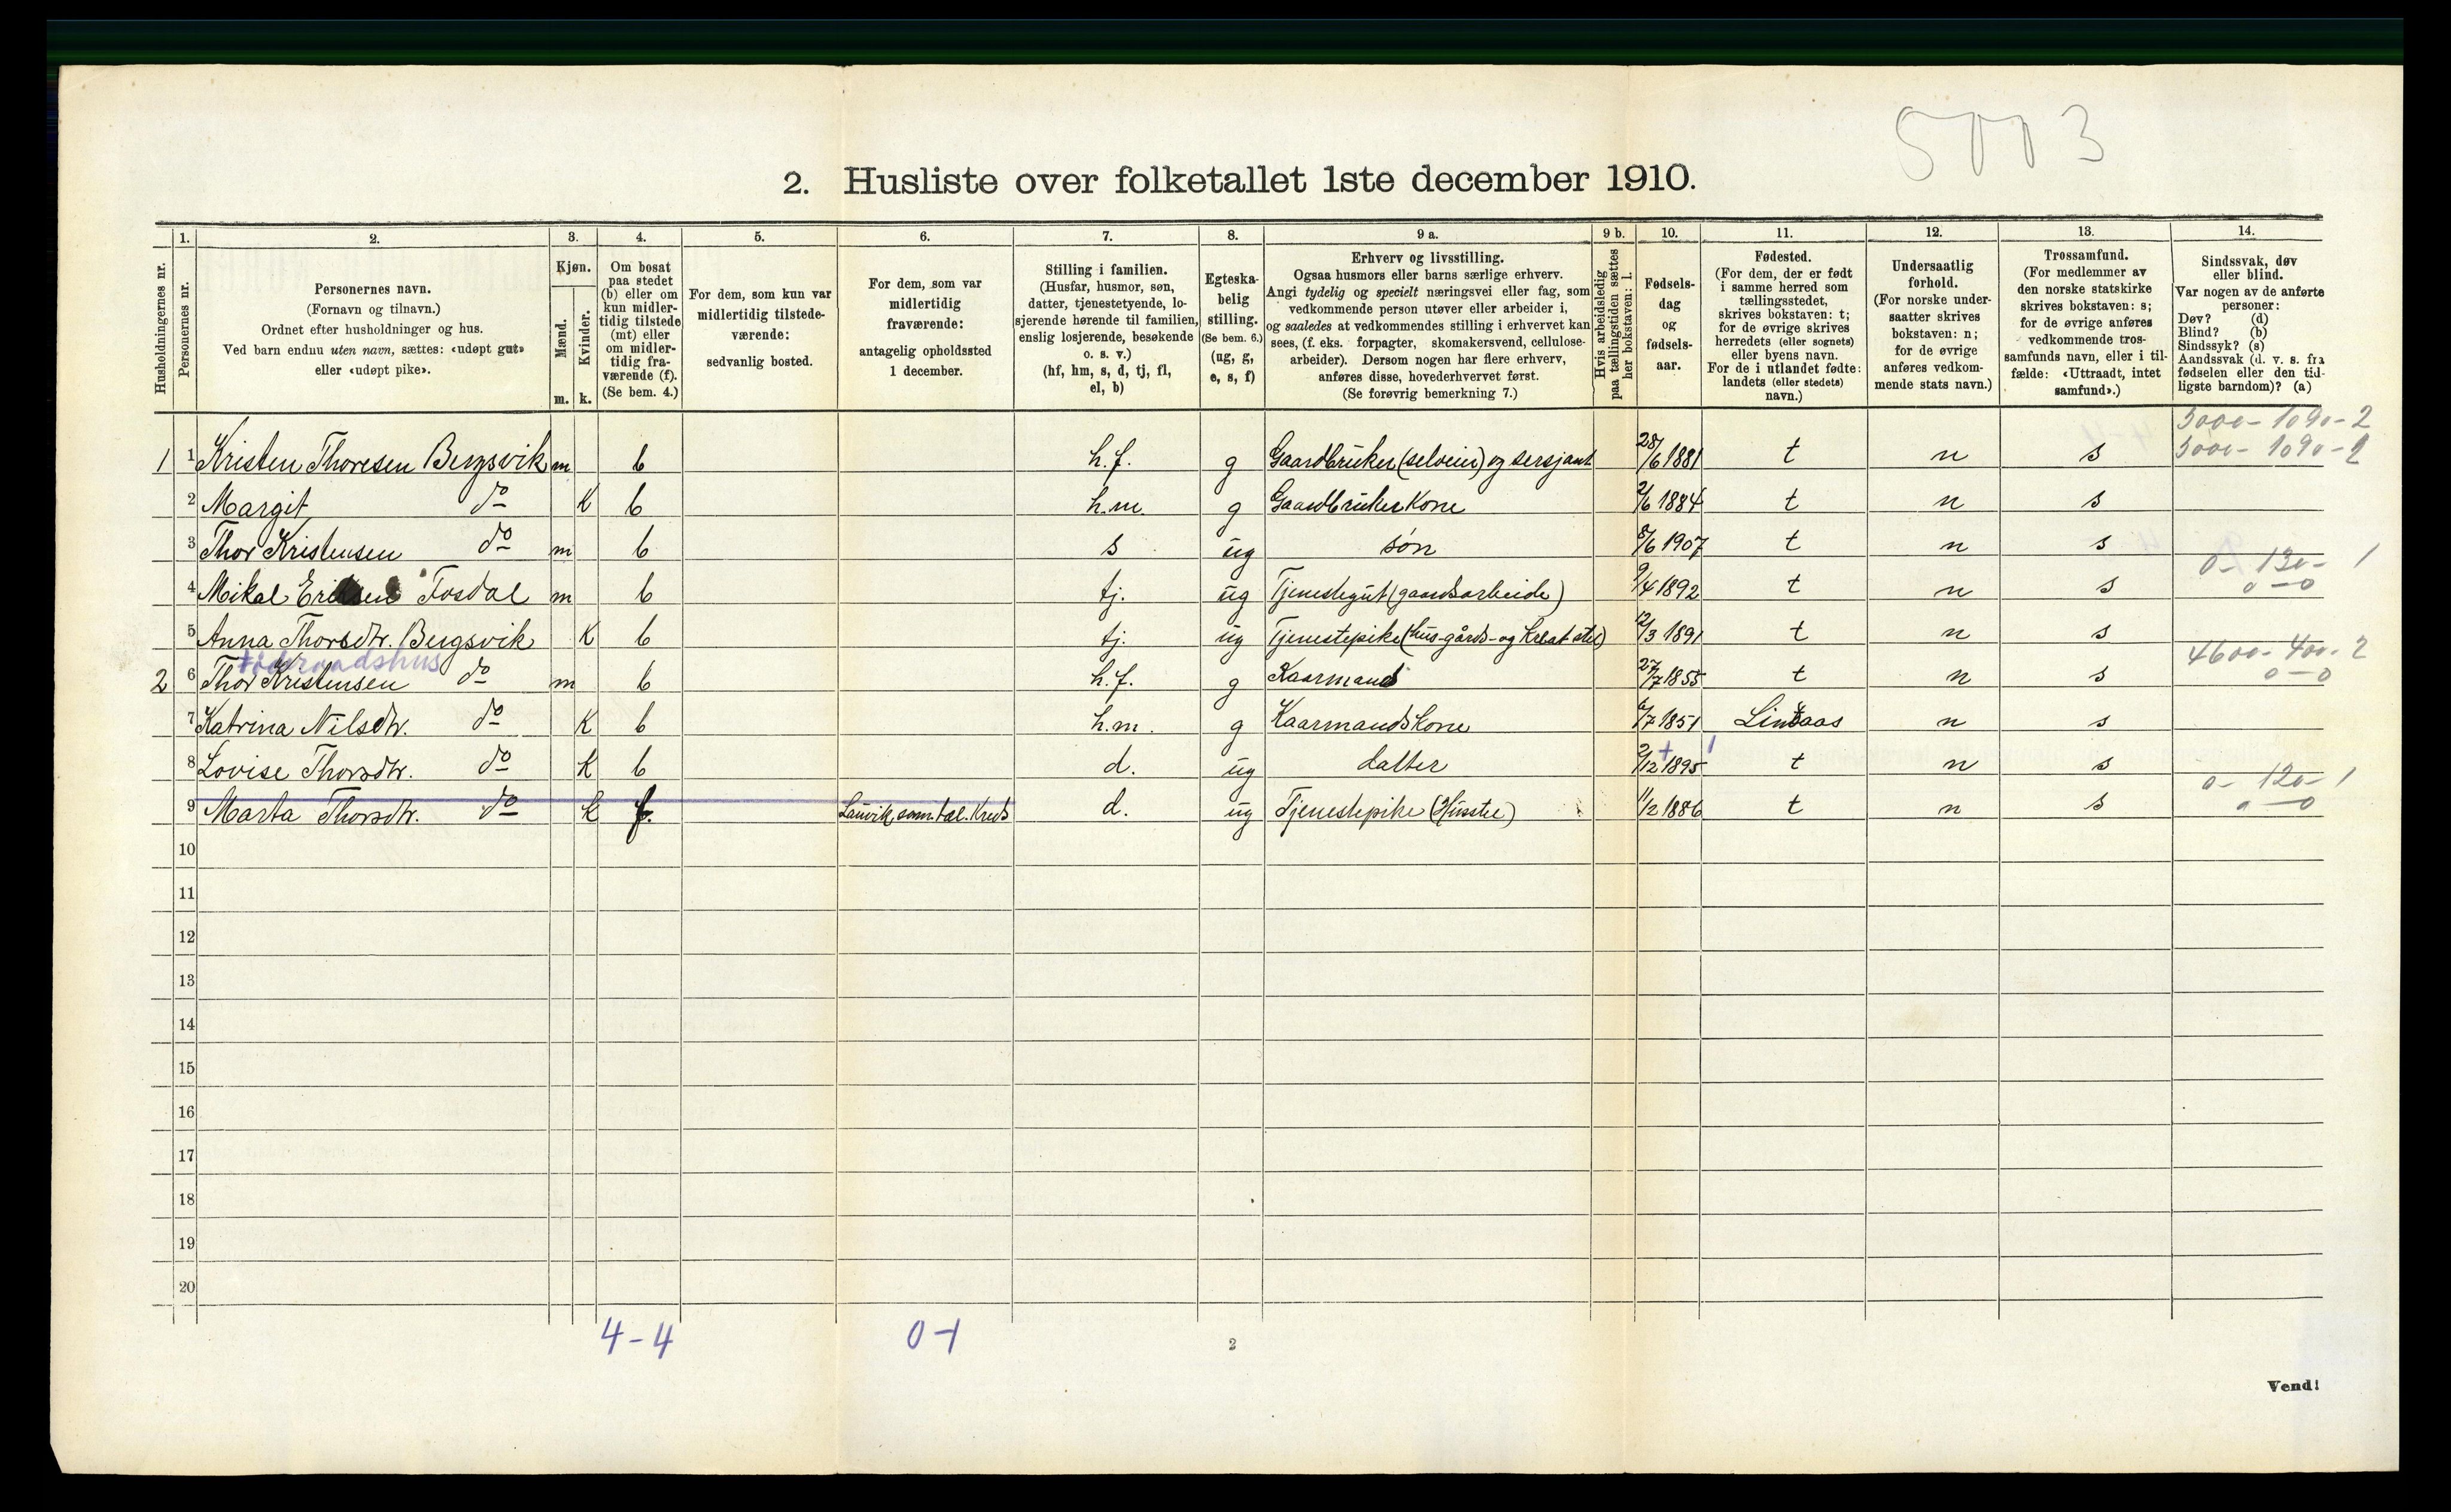 5003
2. Husliste over folketallet 1ste december 1910.
Husholdningernes nr.
1.
Personernes nr.
2.
Personernes navn.
(Fornavn og tilnavn.)
Ordnet efter husholdninger og hus.
Ved barn endnu uten navn, sættes: «udøpt gut»
eller «udøpt pike».
3.
Kjøn.
Mænd.
Kvinder.
m. k.
4.
Om bosat
paa stedet
(b) eller om
kun midler-
tidig tilstede
(mt) eller
om midler-
tidig fra-
værende (f).
(Se bem. 4.)
5.
For dem, som kun var
midlertidig tilstede-
værende:
sedvanlig bosted.
6.
For dem, som var
midlertidig
fraværende:
antagelig opholdssted
1 december.
7.
Stilling i familien.
(Husfar, husmor, søn,
datter, tjenestetyende, lo-
sjerende hørende til familien,
enslig losjerende, besøkende
o. s. v.)
(hf, hm, s, d, tj, fl,
el, b)
8.
Egteska-
belig
stilling.
(Se bem. 6.)
(ug, g,
e, s, f)
9 a.
Erhverv og livsstilling.
Ogsaa husmors eller barns særlige erhverv.
Angi tydelig og specielt næringsvei eller fag, som
vedkommende person utøver eller arbeider i,
og saaledes at vedkommendes stilling i erhvervet kan
sees, (f. eks. forpagter, skomakersvend, cellulose-
arbeider). Dersom nogen har flere erhverv,
anføres disse, hovederhvervet først.
(Se forøvrig bemerkning 7.)
9 b.
Hvis arbeidsledig
paa tællingstiden sættes
her bokstaven: l.
10.
Fødsels-
dag
og
fødsels-
aar.
11.
Fødested.
(For dem, der er født
i samme herred som
tællingsstedet,
skrives bokstaven: t;
for de øvrige skrives
herredets (eller sognets)
eller byens navn.
For de i utlandet fødte:
landets (eller stedets)
navn.)
12.
Undersaatlig
forhold.
(For norske under-
saatter skrives
bokstaven: n;
for de øvrige
anføres vedkom-
mende stats navn.)
13.
Trossamfund.
(For medlemmer av
den norske statskirke
skrives bokstaven: s;
for de øvrige anføres
vedkommende tros-
samfunds navn, eller i til-
fælde: «Uttraadt, intet
samfund».)
14.
Sindssvak, døv
eller blind.
Var nogen av de anførte
personer:
Døv? (d)
Blind? (b)
Sindssyk? (s)
Aandssvak (d. v. s. fra
fødselen eller den tid-
ligste barndom)? (a)
3000 - 1090 - 2
1 1 Kristen Thoresen Bergsvik m b h.f. g Gaardbruker (selveier) og sersjant 28/6 1881 t n s 3000 - 1090 - 2
2 Margit do K b h.m. g Gaardbrukerkone 2/6 1884 t n s
3 Thor Kristensen do m b s ug søn 8/6 1907 t n s
0 - 130 - 1
4 Mikal Eriksen Fosdal m b tj. ug Tjenestegut (gaardsarbeide) 9/4 1892 t n s 0 - 0
5 Anna Thorsdtr. Bergsvik K b tj. ug Tjenestepike (hus-gårds- og kreatstel) 12/3 1891 t n s
Føderaadshus 4600 - 400 - 2
2 6 Thor Kristensen do m b h.f. g Kaarmand 27/7 1855 t n s 0 - 0
7 Katrina Nilsdtr. do K b h.m. g Kaarmandskone 6/7 1851 Lindaas n s
8 Lovise Thorsdtr. do K b d. ug datter 2/12 1895 t n s
0 - 120 - 1
9 Marta Thorsdtr. do k f. Lauvik, som. tæl. Kreds d. ug Tjenestepike (Husstel) 11/2 1886 t n s 0 - 0
10
11
12
13
14
15
16
17
18
19
20
4 - 4 0-1
2
Vend!